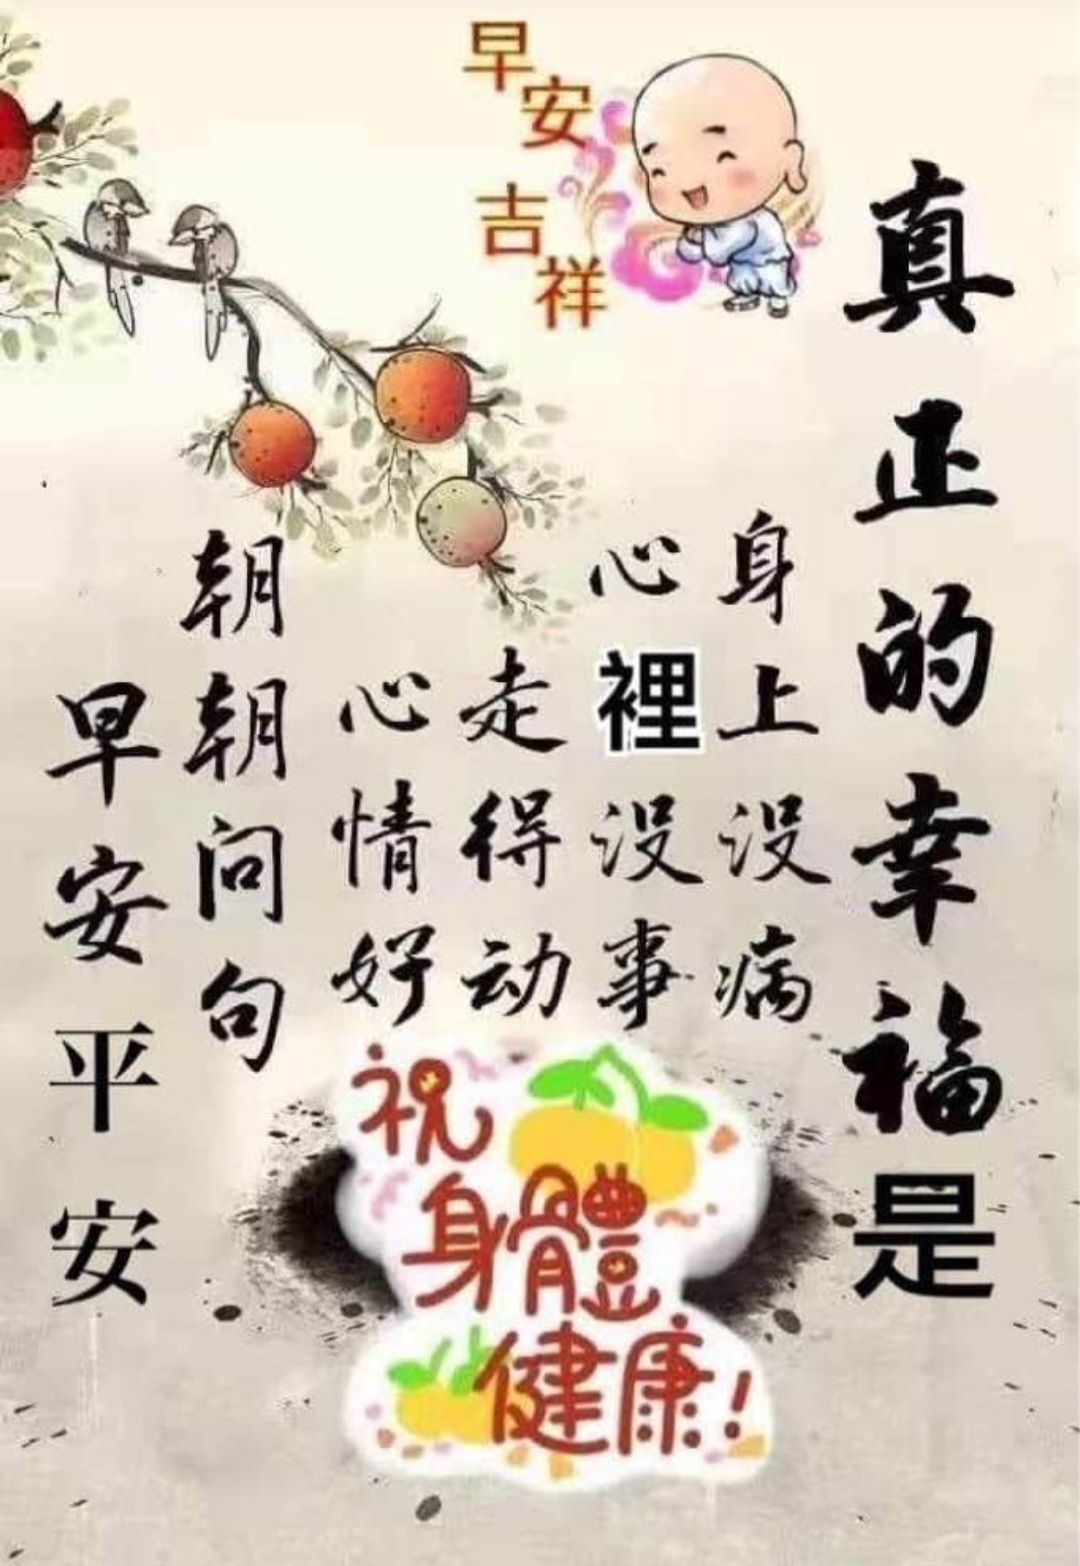 早安吉祥
真正的幸福是
身上没病
心裡没事
走得动
心情好
朝朝问句
早安平安
祝
身體
健康!